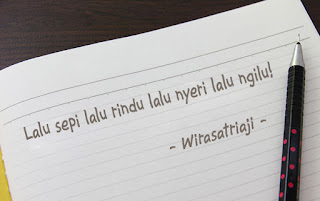 Lalu sepi lalu rindu lalu nyeri lalu ngilu!
- Wirasatriaji -